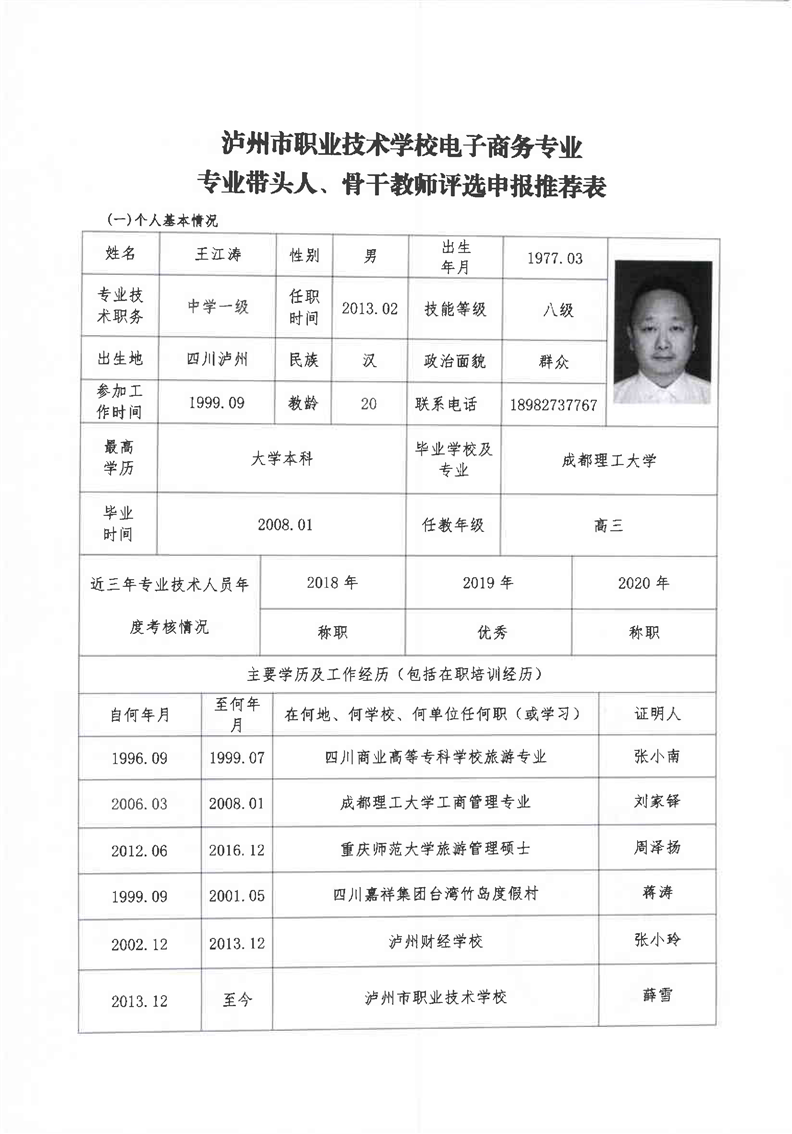 泸州市职业技术学校电子商务专业
专业带头人、骨干教师评选申报推荐表
(一)个人基本情况
姓名 王江涛 性别 男 出生年月 1977.03
专业技术职务 中学一级 任职时间 2013.02 技能等级 八级
出生地 四川泸州 民族 汉 政治面貌 群众
参加工作时间 1999.09 教龄 20 联系电话 18982737767
最高学历 大学本科 毕业学校及专业 成都理工大学
毕业时间 2008.01 任教年级 高三
近三年专业技术人员年度考核情况 2018 年 2019 年 2020 年
称职 优秀 称职
主要学历及工作经历（包括在职培训经历）
自何年月 至何年月 在何地、何学校、何单位任何职（或学习） 证明人
1996.09 1999.07 四川商业高等专科学校旅游专业 张小南
2006.03 2008.01 成都理工大学工商管理专业 刘家铎
2012.06 2016.12 重庆师范大学旅游管理硕士 周泽扬
1999.09 2001.05 四川嘉祥集团台湾竹岛度假村 蒋涛
2002.12 2013.12 泸州财经学校 张小玲
2013.12 至今 泸州市职业技术学校 薛雪